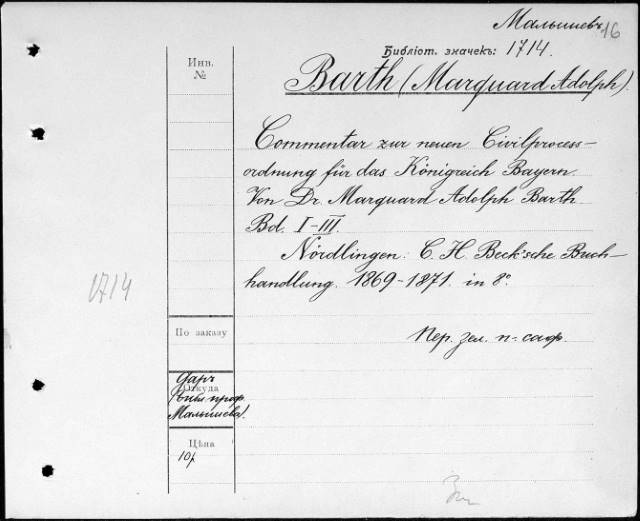 Малышевъ 16
Библіот. значекъ: 1714.
Barth (Marquard Adolph).
Инв.
№
Commentar zur neuen Civilprocess-
ordnung für das Königreich Bayern.
Von Dr. Marquard Adolph Barth
Bd. I-III.
Nördlingen: C. H. Beck'sche Buch-
handlung. 1869-1871. in 8°
1714
По заказу
Пер. зел. п. саф.
Даръ
Откуда
(библ. проф.
Малышева).
Цѣна
10р